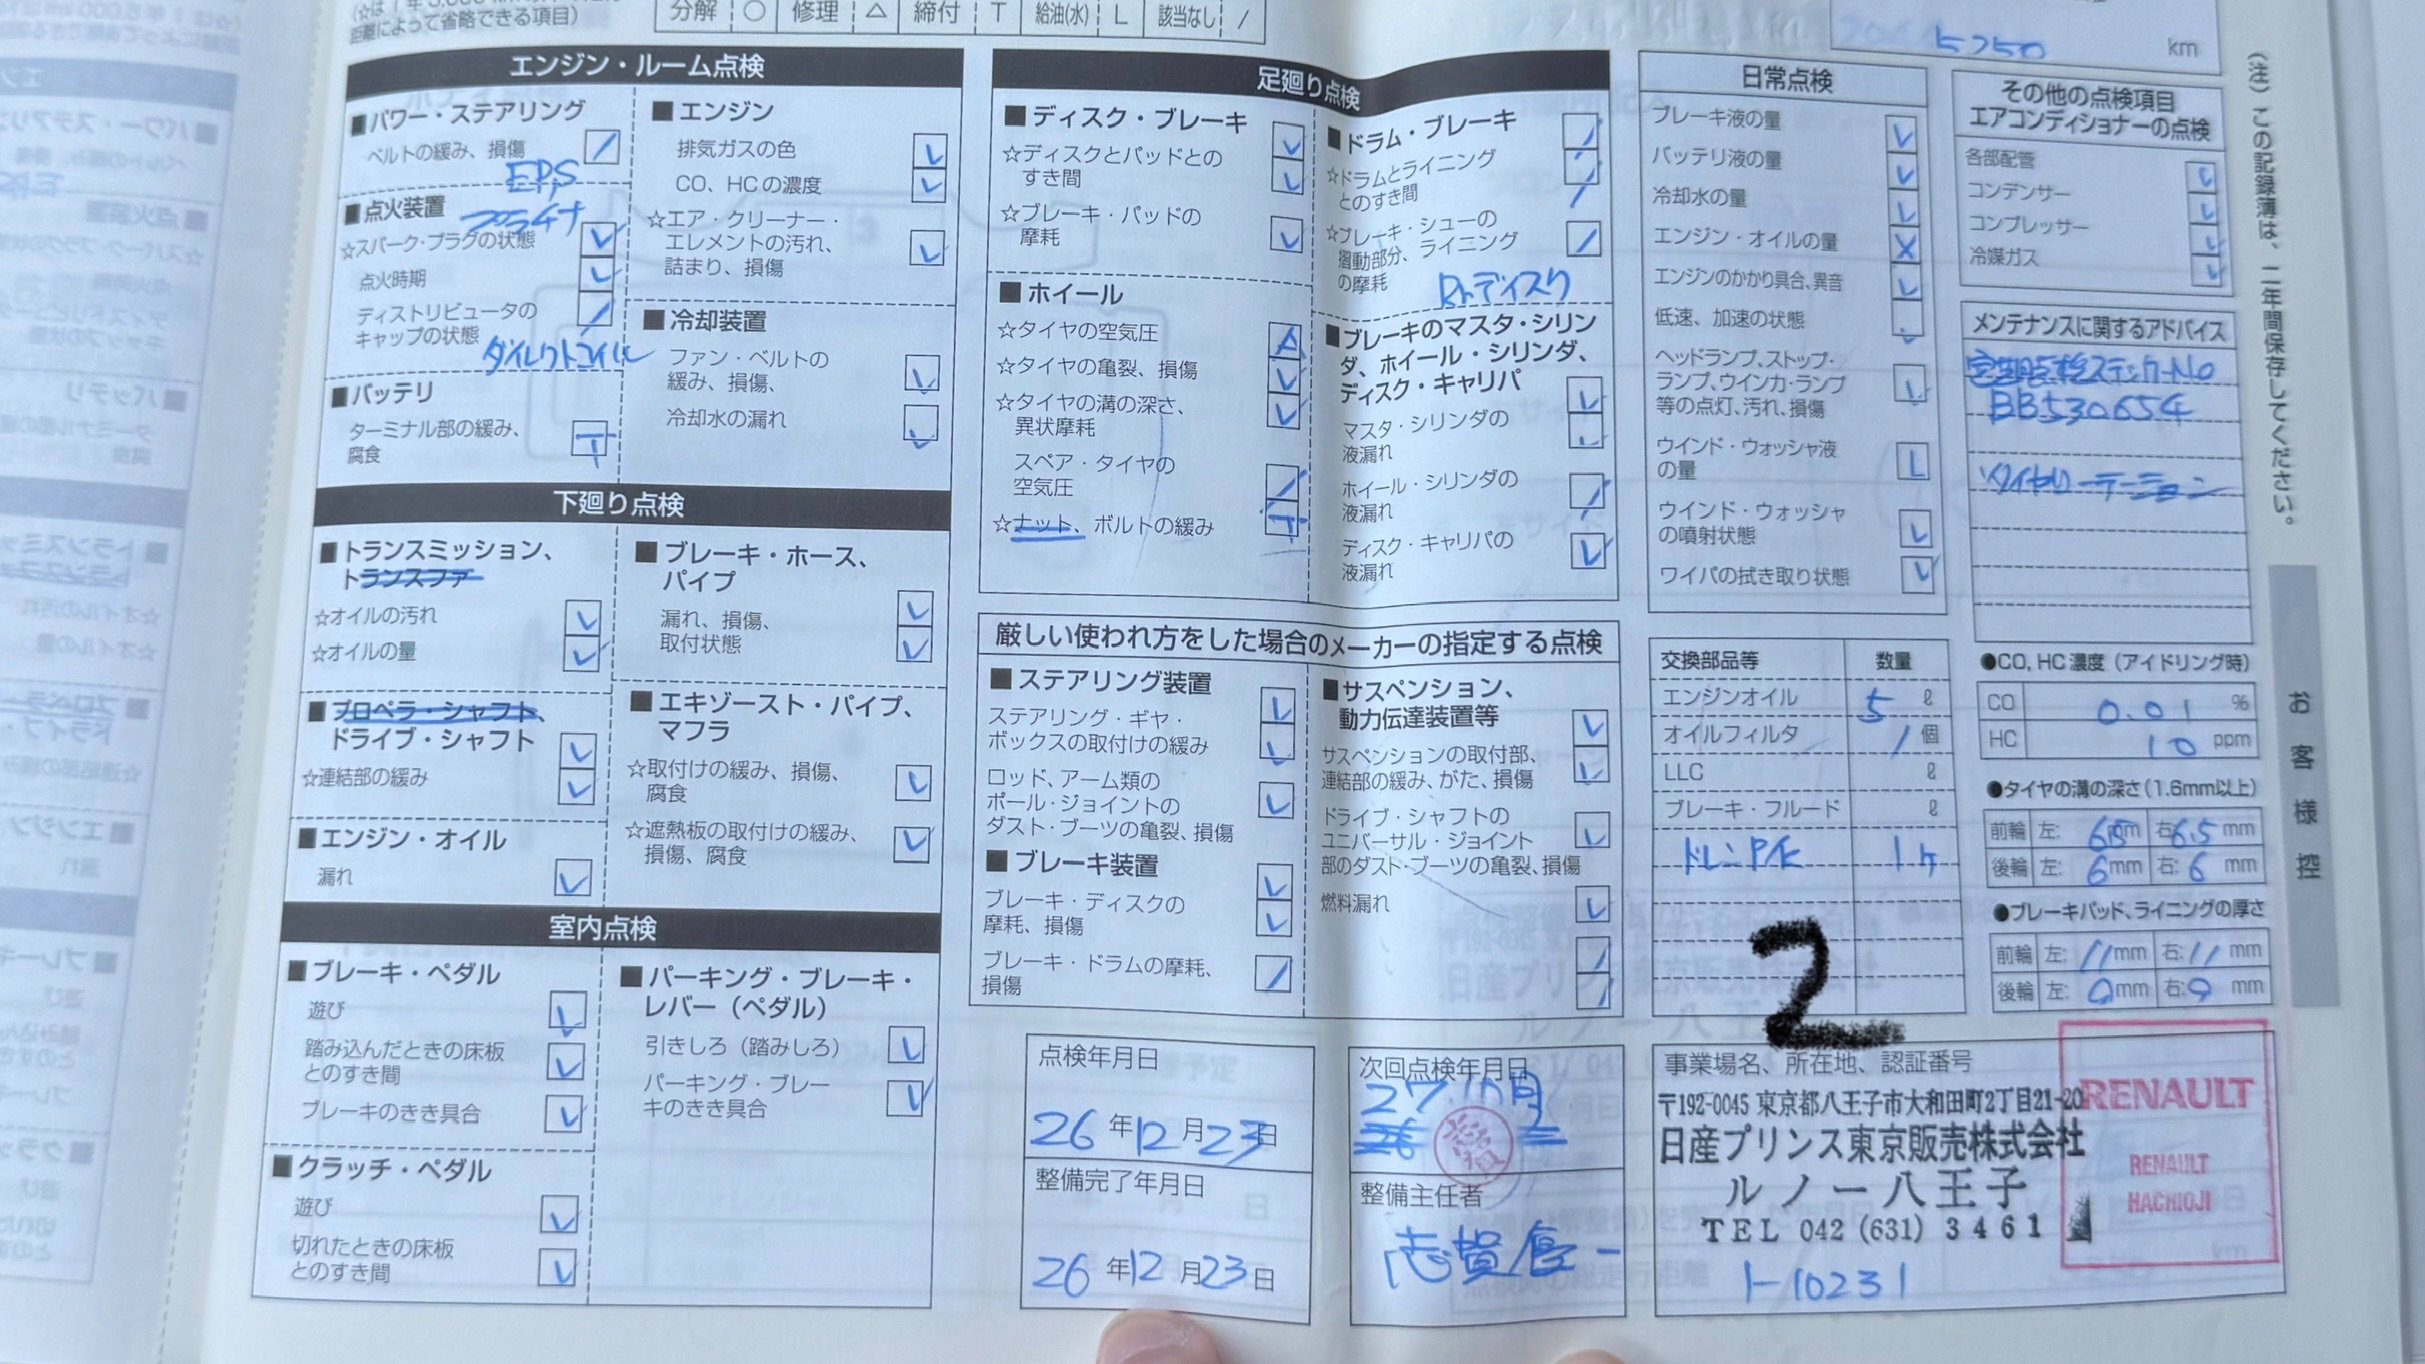 距離によって省略できる項目)
分解 ○ 修理 △ 締付 T 給油(水) L 該当なし /
5250 km
エンジン・ルーム点検
■パワー・ステアリング
ベルトの緩み、損傷 /
EPS
■点火装置
プラチナ
☆スパーク・プラグの状態
点火時期
ディストリビュータの
キャップの状態 /
ダイレクトコイル
■バッテリ
ターミナル部の緩み、
腐食 T
■エンジン
排気ガスの色
CO、HCの濃度
☆エア・クリーナー・
エレメントの汚れ、
詰まり、損傷
■冷却装置
ファン・ベルトの
緩み、損傷、
冷却水の漏れ
下廻り点検
■トランスミッション、
トランスファ
☆オイルの汚れ
☆オイルの量
■プロペラ・シャフト、
ドライブ・シャフト
☆連結部の緩み
■エンジン・オイル
漏れ
■ブレーキ・ホース、
パイプ
漏れ、損傷、
取付状態
■エキゾースト・パイプ、
マフラ
☆取付けの緩み、損傷、
腐食
☆遮熱板の取付けの緩み、
損傷、腐食
室内点検
■ブレーキ・ペダル
遊び
踏み込んだときの床板
とのすき間
ブレーキのきき具合
■クラッチ・ペダル
遊び
切れたときの床板
とのすき間
■パーキング・ブレーキ・
レバー(ペダル)
引きしろ(踏みしろ)
パーキング・ブレー
キのきき具合
足廻り点検
■ディスク・ブレーキ
☆ディスクとパッドとの
すき間
☆ブレーキ・パッドの
摩耗
■ホイール
☆タイヤの空気圧 A
☆タイヤの亀裂、損傷
☆タイヤの溝の深さ、
異状摩耗
スペア・タイヤの
空気圧 /
☆ナット、ボルトの緩み T
■ドラム・ブレーキ
☆ドラムとライニング
とのすき間
☆ブレーキ・シューの
摺動部分、ライニング
の摩耗
Rrディスク
■ブレーキのマスタ・シリン
ダ、ホイール・シリンダ、
ディスク・キャリパ
マスタ・シリンダの
液漏れ
ホイール・シリンダの
液漏れ /
ディスク・キャリパの
液漏れ
厳しい使われ方をした場合のメーカーの指定する点検
■ステアリング装置
ステアリング・ギヤ・
ボックスの取付けの緩み
ロッド、アーム類の
ボール・ジョイントの
ダスト・ブーツの亀裂、損傷
■ブレーキ装置
ブレーキ・ディスクの
摩耗、損傷
ブレーキ・ドラムの摩耗、
損傷 /
■サスペンション、
動力伝達装置等
サスペンションの取付部、
連結部の緩み、がた、損傷
ドライブ・シャフトの
ユニバーサル・ジョイント
部のダスト・ブーツの亀裂、損傷
燃料漏れ
日常点検
ブレーキ液の量
バッテリ液の量
冷却水の量
エンジン・オイルの量 X
エンジンのかかり具合、異音
低速、加速の状態
ヘッドランプ、ストップ・
ランプ、ウインカ・ランプ
等の点灯、汚れ、損傷
ウインド・ウォッシャ液
の量 L
ウインド・ウォッシャ
の噴射状態
ワイパの拭き取り状態
その他の点検項目
エアコンディショナーの点検
各部配管
コンデンサー
コンプレッサー
冷媒ガス
メンテナンスに関するアドバイス
定期点検ステッカーNo
BB530654
タイヤローテーション
交換部品等 数量
エンジンオイル 5 ℓ
オイルフィルタ 1 個
LLC ℓ
ブレーキ・フルード ℓ
ドレンP/K 1ケ
2
●CO, HC 濃度(アイドリング時)
CO 0.01 %
HC 10 ppm
●タイヤの溝の深さ(1.6mm以上)
前輪 左: 6.5mm 右: 6.5 mm
後輪 左: 6mm 右: 6 mm
●ブレーキパッド、ライニングの厚さ
前輪 左: 11mm 右: 11 mm
後輪 左: 9mm 右: 9 mm
点検年月日
26年12月23日
整備完了年月日
26年12月23日
次回点検年月日
27 10月
26
整備主任者
志賀
事業場名、所在地、認証番号
〒192-0045 東京都八王子市大和田町2丁目21-20
日産プリンス東京販売株式会社
ルノー八王子
TEL 042 (631) 3461
1-10231
RENAULT
RENAULT
HACHIOJI
(注) この記録簿は、二年間保存してください。
お客様控